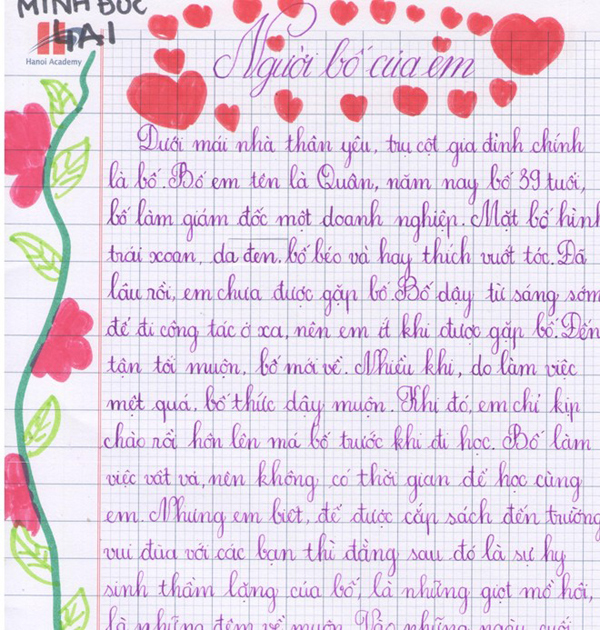 MINH ĐỨC
4A1
Hanoi Academy
Người bố của em
Dưới mái nhà thân yêu, trụ cột gia đình chính
là bố. Bố em tên là Quân, năm nay bố 39 tuổi,
bố làm giám đốc một doanh nghiệp. Mặt bố hình
trái xoan, da đen. bố béo và hay thích vuốt tóc. Đã
lâu rồi, em chưa được gặp bố. Bố dậy từ sáng sớm
để đi công tác ở xa, nên em ít khi được gặp bố. Đến
tận tối muộn, bố mới về. Nhiều khi, do làm việc
mệt quá, bố thức dậy muộn. Khi đó, em chỉ kịp
chào rồi hôn lên má bố trước khi đi học. Bố làm
việc vất vả, nên không có thời gian để học cùng
em. Nhưng em biết, để được cắp sách đến trường
vui đùa với các bạn thì đằng sau đó là sự hy
sinh thầm lặng của bố, là những giọt mồ hôi,
là những đêm về muộn. Vào những ngày cuối